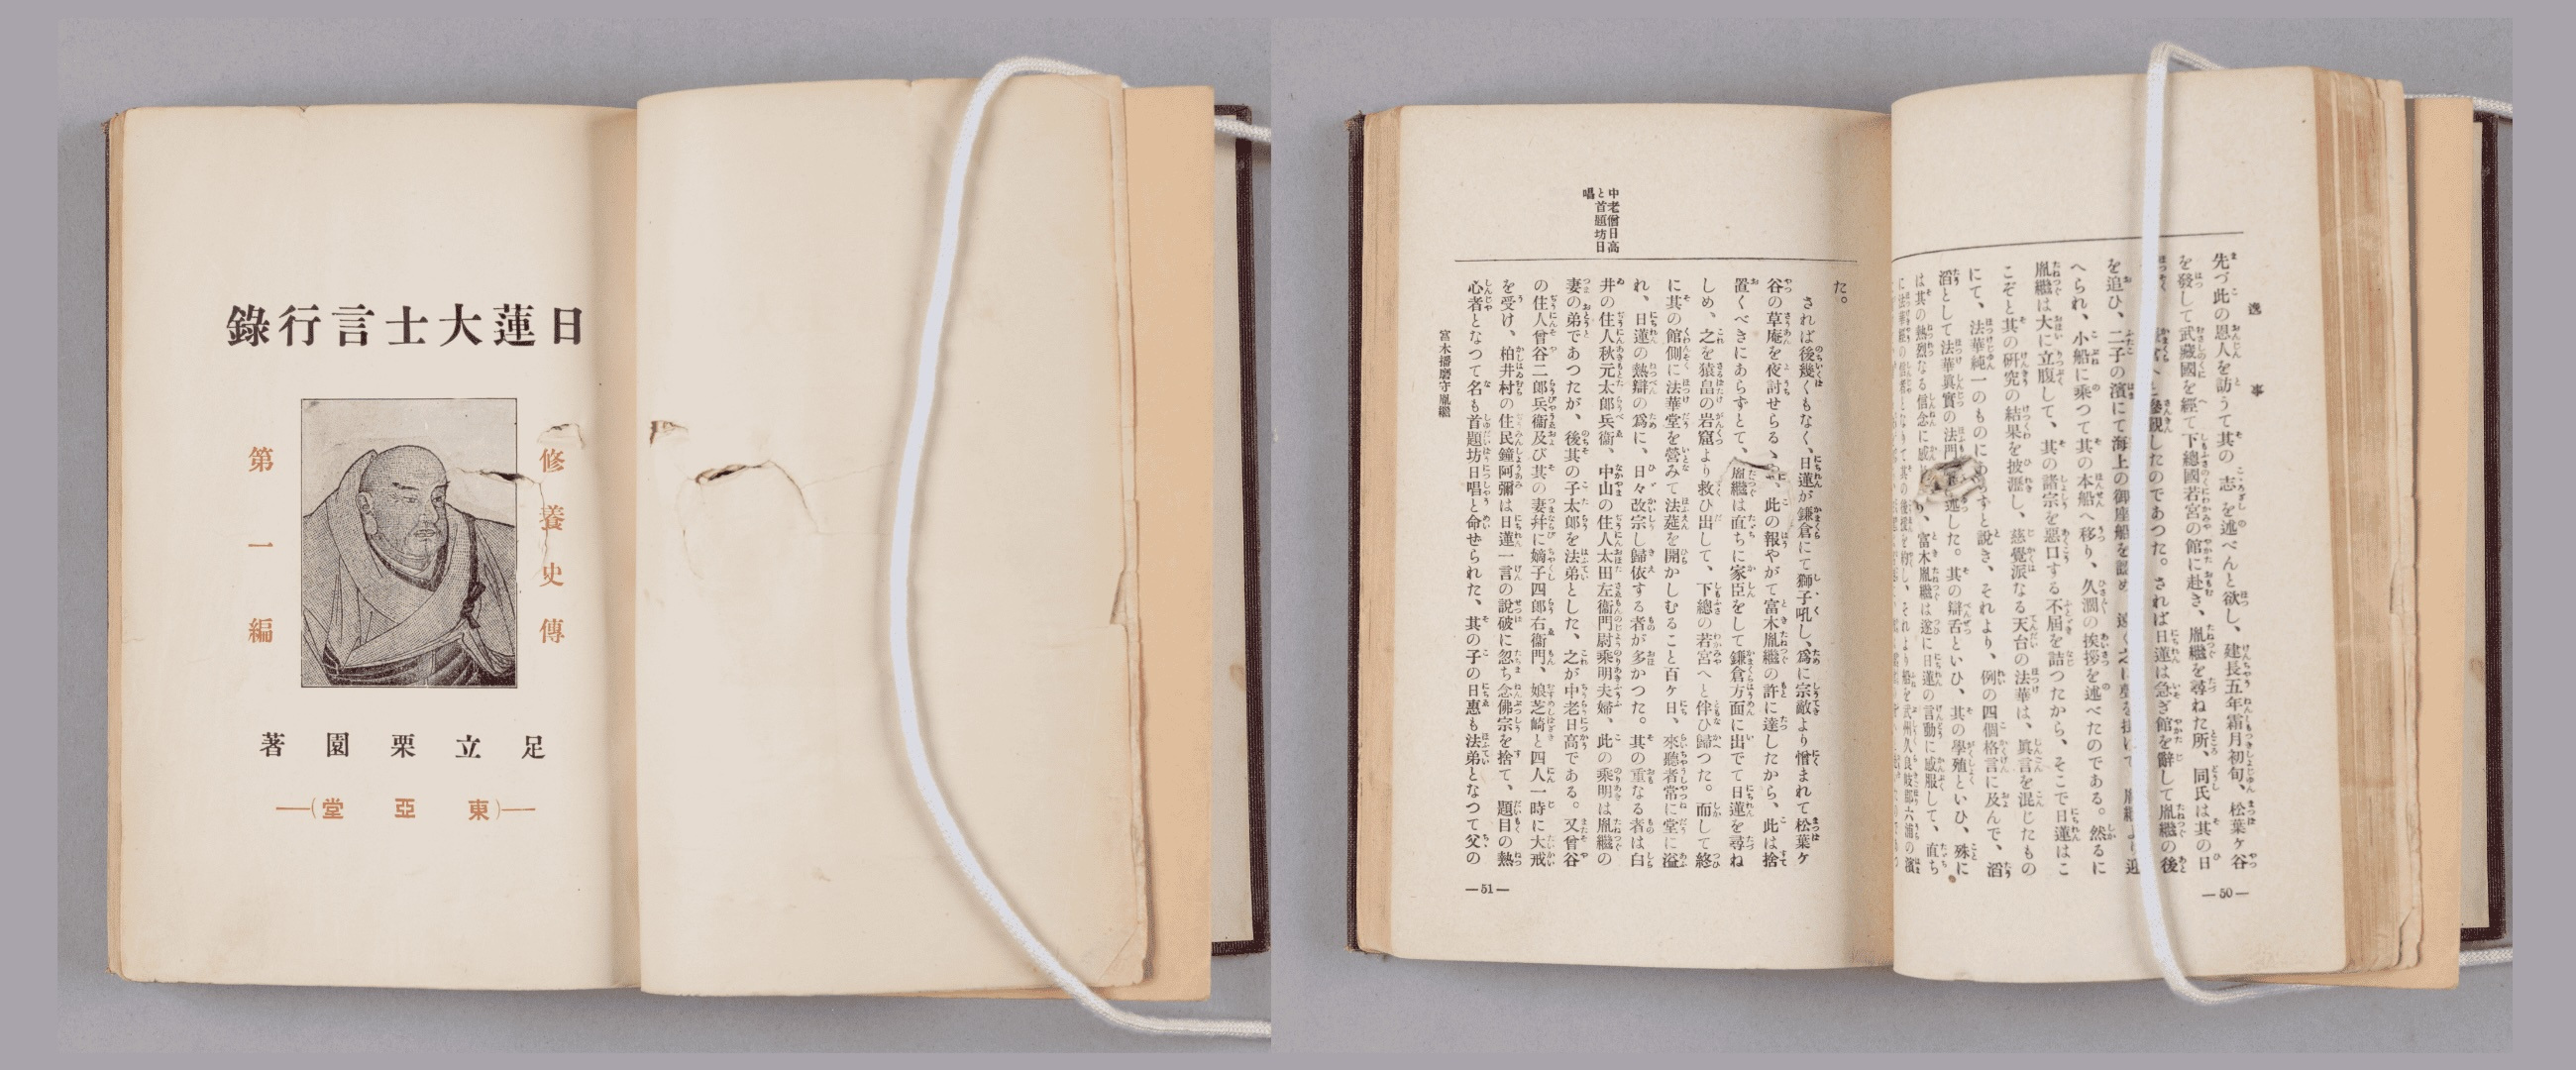 日蓮大士言行錄
修養史傳
第一編
足立栗園著
―(東亞堂)―
逸事
先づ此の恩人を訪うて其の志を述べんと欲し、建長五年霜月初旬、松葉ヶ谷
を發して武藏國を經て下總國若宮の館に赴き、胤繼を尋ねた所、同氏は其の日
へと參觀したのであつた。されば日蓮は急ぎ館を辭して胤繼の後
を追ひ、二子の濱にて海上の御座船を認め
へられ、小船に乘つて其の本船へ移り、久濶の挨拶を述べたのである。然るに
胤繼は大に立腹して、其の諸宗を惡口する不屆を詰つたから、そこで日蓮はこ
こぞと其の硏究の結果を披瀝し、慈覺派なる天台の法華は、眞言を混じたもの
にて、法華純一のものにあらずと說き、それより、例の四個格言に及んで、滔
滔として法華眞實の法門を述した。其の辯舌といひ、其の學殖といひ、殊に
は其の熱烈なる信念に感じ、富木胤繼は遂に日蓮の言動に感服して、直ち
―50―
中老僧日高と首題坊日唱
た。
されば後幾くもなく、日蓮が鎌倉にて獅子吼し、爲に宗敵より憎まれて松葉ヶ
谷の草庵を夜討せらるゝや、此の報やがて富木胤繼の許に達したから、此は捨
置くべきにあらずとて、胤繼は直ちに家臣をして鎌倉方面に出でて日蓮を尋ね
しめ、之を猿畠の岩窟より救ひ出して、下總の若宮へと伴ひ歸つた。而して終
に其の館側に法華堂を營みて法莚を開かしむること百ヶ日、來聽者常に堂に溢
れ、日蓮の熱辯の爲に、日々改宗し歸依する者が多かつた。其の重なる者は白
井の住人秋元太郎兵衞、中山の住人太田左衞門尉乘明夫婦、此の乘明は胤繼の
妻の弟であつたが、後其の子太郎を法弟とした、之が中老日高である。又曾谷
の住人曾谷二郎兵衞及び其の妻幷に嫡子四郎右衞門、娘芝崎と四人一時に大戒
を受け、柏井村の住民鐘阿彌は日蓮一言の說破に忽ち念佛宗を捨て、題目の熱
心者となつて名も首題坊日唱と命せられた、其の子の日惠も法弟となつて父の
富木播磨守胤繼
―51―